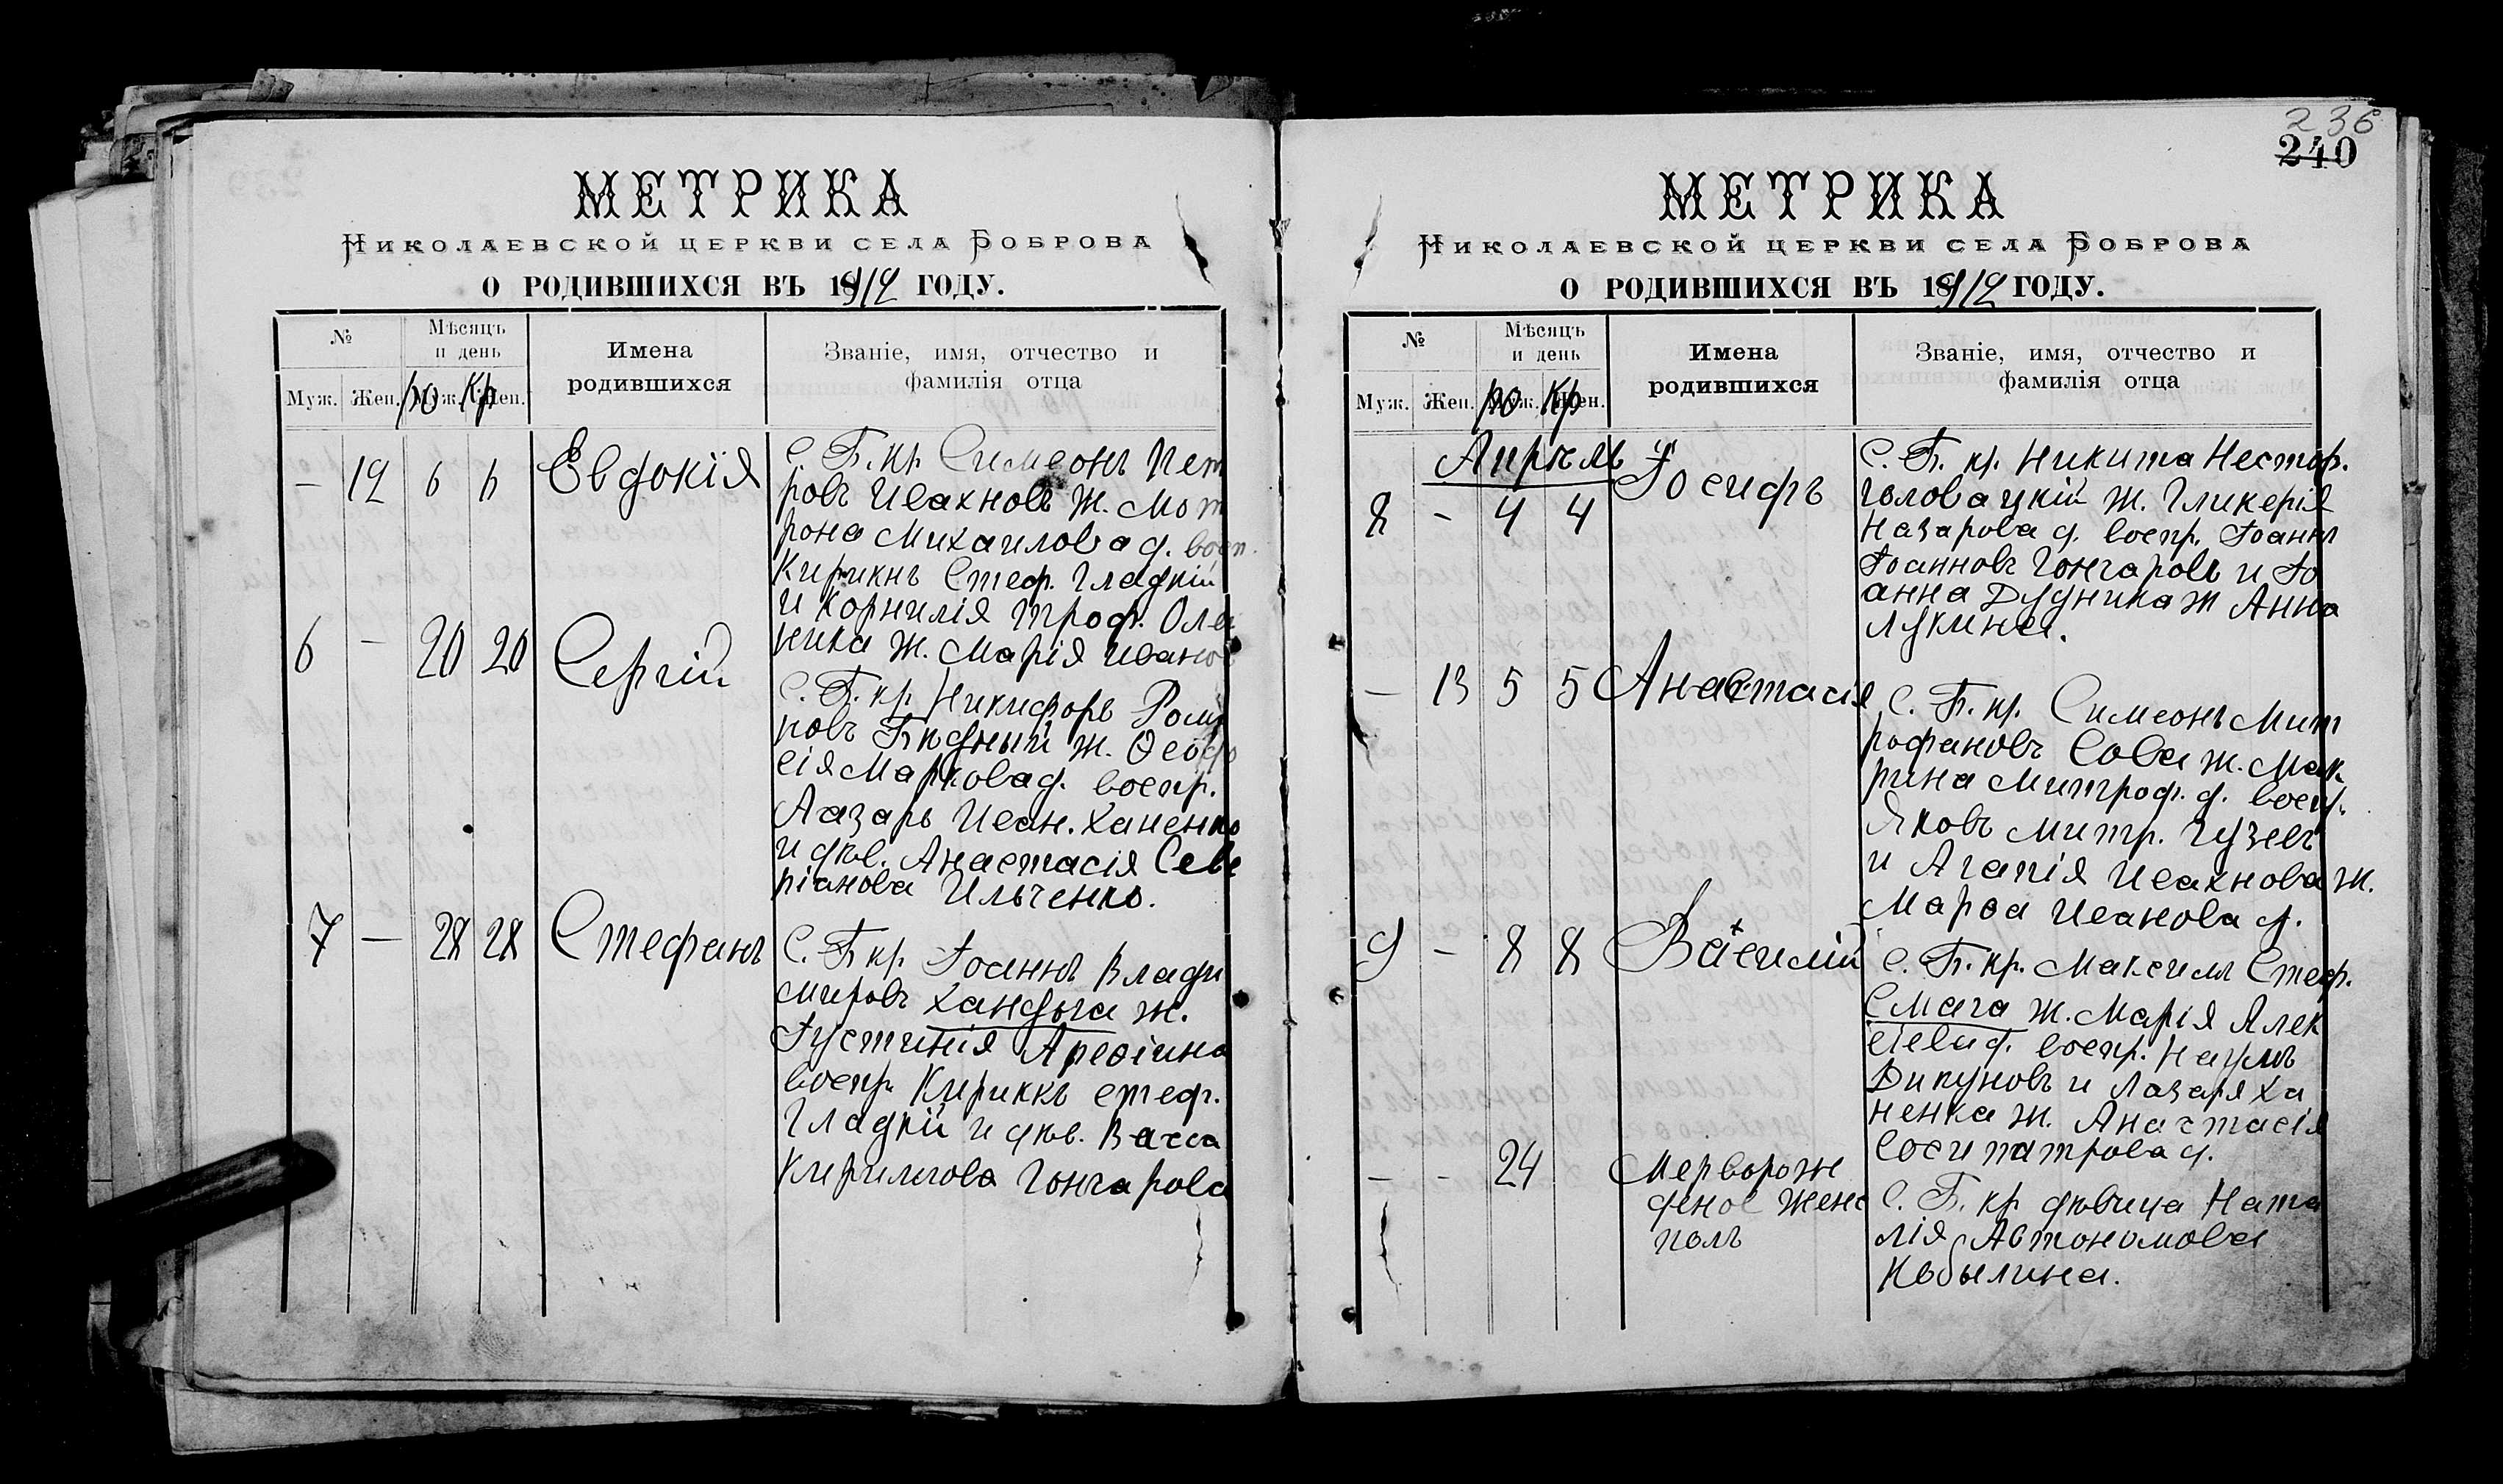 МЕТРИКА
Николаевской церкви села Боброва
О РОДИВШИХСЯ ВЪ 1912 ГОДУ.
№
Мѣсяцъ и день
Имена родившихся
Званіе, имя, отчество и фамилія отца
Муж. Жен. Муж. Жен.
ро кр
- 12 6 6 Евдокія
С. Б. кр Симеонъ Пет
ровъ Исахновъ ж. Мот
рона Михаилова д. восп.
Кирикъ Стеф. Гладкій
и Корнилія Троф. Олей
ника ж. Марія Иванов
6 - 20 20 Сергій
С. Б. кр Никифоръ
ровъ Бѣдный ж. Ѳеодо
сія Маркова д. воспр.
Лазарь Иван. Ханенко
и дѣв. Анастасія Севе
ріанова Ильченко.
7 - 28 28 Стефанъ
С. Б кр Іоаннъ Влади
міровъ Хандыга ж.
Іустинія Арефіина
воспр. Кириккъ стеф.
Гладкій и дѣв. Васса
Кириллова Гончарова
236
240
МЕТРИКА
Николаевской церкви села Боброва
О РОДИВШИХСЯ ВЪ 1912 ГОДУ.
№
Мѣсяцъ и день
Имена родившихся
Званіе, имя, отчество и фамилія отца
Муж. Жен. Муж. Жен.
ро кр
Апрѣль
8 - 4 4 Іосифъ
С. Б. кр. Никита Нестор.
Головацкій ж. Гликерія
Назарова д. воспр. Іоаннъ
Іоанновъ Гончаровъ и Іо
анна Дудника ж Анна
Лукина.
- 13 5 5 Анастасія
С. Б. кр. Симеонъ Мит
рофановъ Сова ж. Мак
рина Митроф. д. воспр.
Яковъ Митр. Гузевъ
и Агапія Исахнова ж.
Марѳа Иванова д.
9 - 8 8 Василій
С. Б. кр. Максимъ Стеф.
Смага ж. Марія Алек
сіева д. воспр. Наумъ
Дикуновъ и Лазаря Ха
ненка ж. Анастасія
Сосипатрова д.
- - 24 Мерворож
деное женс
полъ
С. Б. кр дѣвица Ната
лія Автономова
Кобылина.